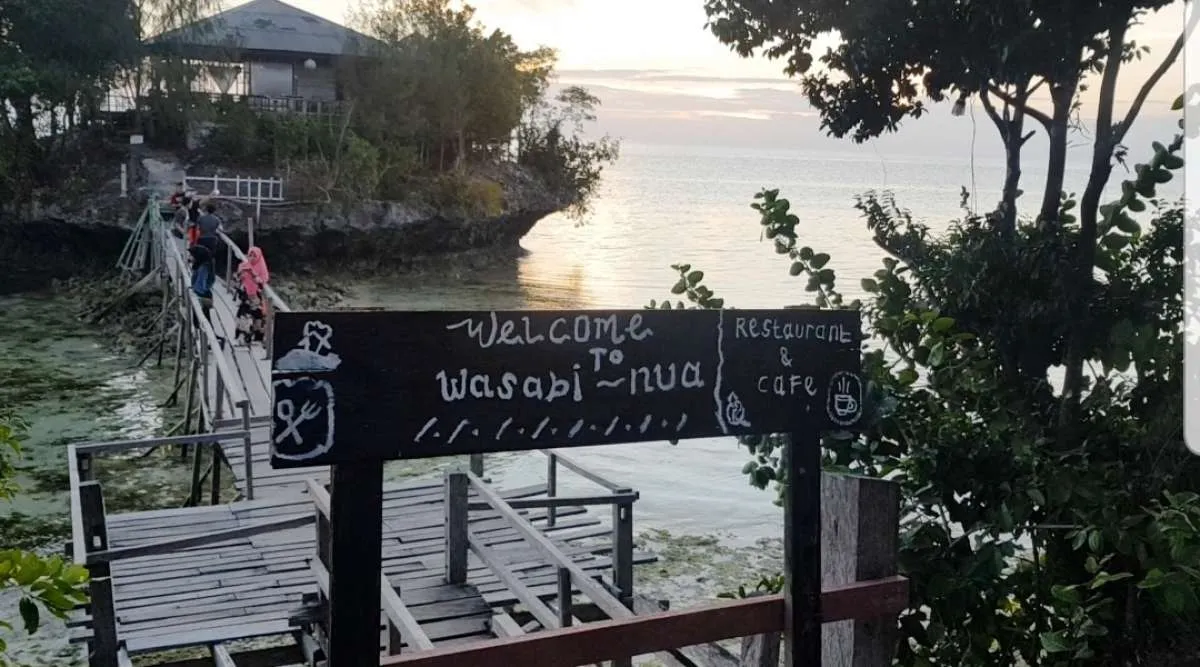 Welcome
To
Wasabi ~ nua
Restaurant
&
cafe